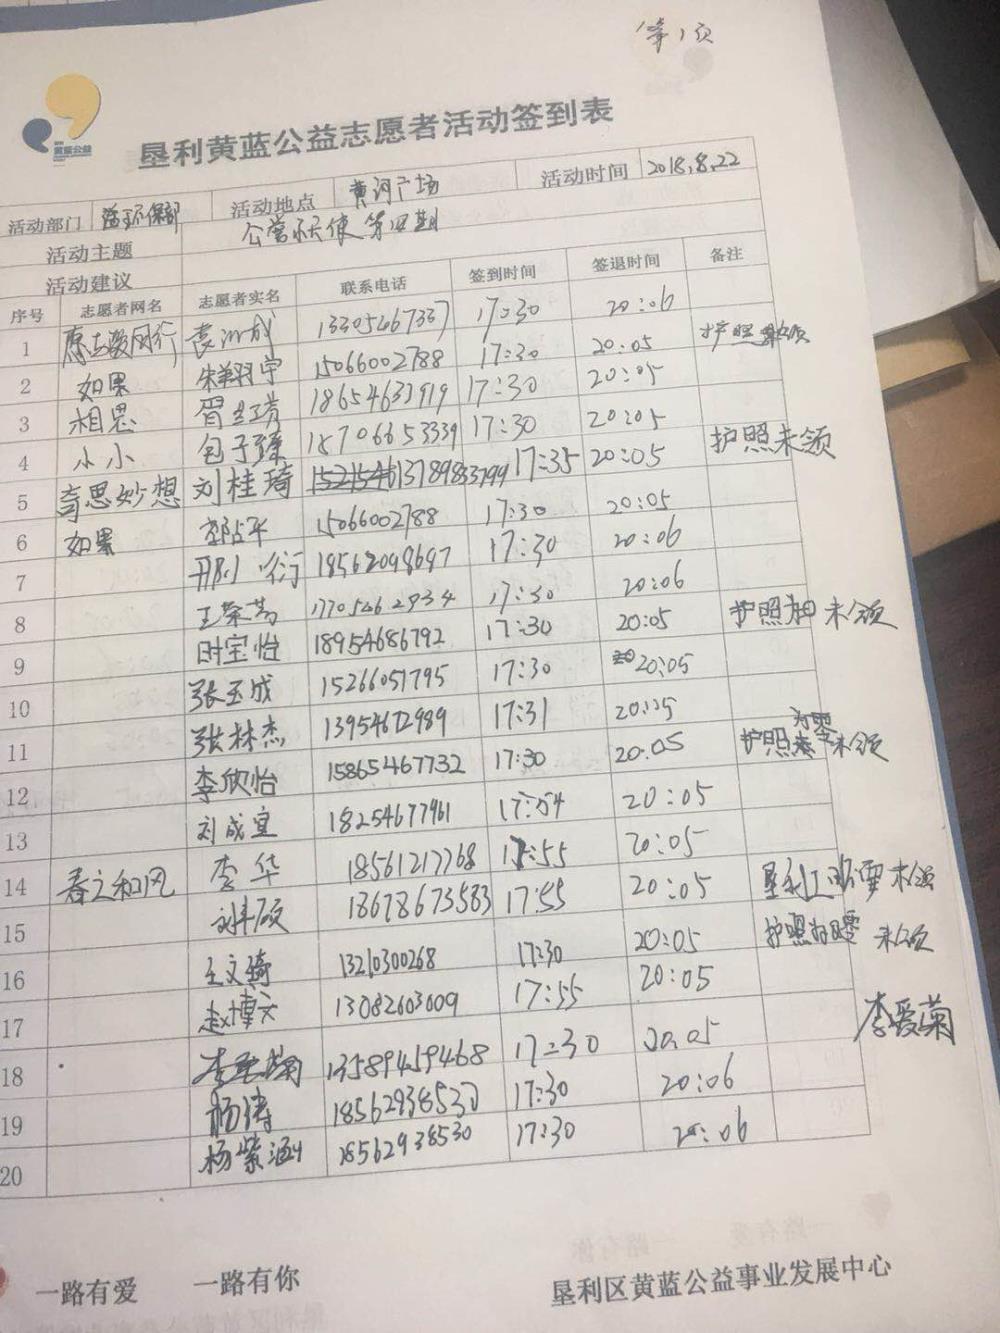 第1页
黄蓝公益
垦利黄蓝公益志愿者活动签到表
活动部门 益环保部 活动地点 黄河广场 活动时间 2018.8.22
活动主题 公益天使第四期
活动建议
序号 志愿者网名 志愿者实名 联系电话 签到时间 签退时间 备注
1 愿志敏同行 袁 成 13305467337 17:30 20:06
2 如果 朱翔宇 15066002788 17:30 20:05 护照
3 相思 18654631919 17:30 20:05
4 小小 包子臻 18706653339 17:30 20:05 护照未领
5 奇思妙想 刘桂琦 13789833799 17:35 20:05
6 如果 15066002788 17:30 20:05
7 邢 衍 18562098697 17:30 20:06
8 王荣芳 17705462934 17:30 20:06
9 时宝怡 18954686792 17:30 20:05 护照 未领
10 张玉成 15266051795 17:30 20:05
11 张林杰 13954672989 17:31 20:05
12 李欣怡 15865467732 17:30 20:05 护照 未领
13 刘成宜 18254677961 17:54 20:05
14 春之和风 李华 18561217768 17:55 20:05
15 18678673583 17:55 20:05 垦利 未领
16 王文琦 13210300268 17:30 20:05 护照 未领
17 赵博文 13082603009 17:55 20:05
18 李爱菊 13589459468 17:30 20:05 李爱菊
19 杨涛 18562938530 17:30 20:06
20 杨紫涵 18562938530 17:30 20:06
一路有爱 一路有你
垦利区黄蓝公益事业发展中心